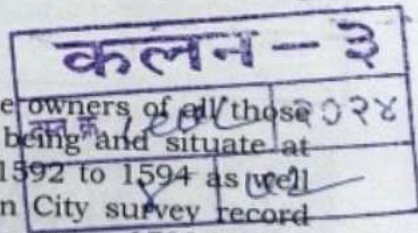 कलन - ३
e owners of all those
दस्त क्र. २०२४
being and situate at
1592 to 1594 as well
n City survey record